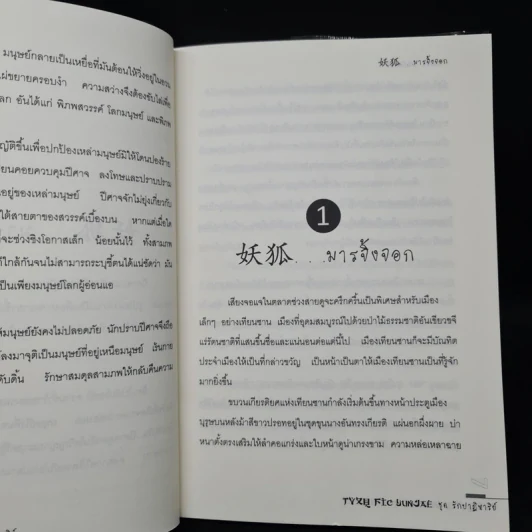 มนุษย์กลายเป็นเหยื่อที่มันต้อนให้วิ่งอยู่ในอวน
แผ่ขยายครอบงำ ความสว่างจึงต้องขับไล่เพื่อ
โลก อันได้แก่ พิภพสวรรค์ โลกมนุษย์ และพิภพ
ญัติขึ้นเพื่อปกป้องเหล่ามนุษย์มิให้โดนปองร้าย
ยนคอยควบคุมปีศาจ ลงโทษและปราบปราม
อยู่ของเหล่ามนุษย์ ปีศาจจักไม่ยุ่งเกี่ยวกับ
ได้สายตาของสวรรค์เบื้องบน หากแต่เมื่อใด
ก็จะช่วงชิงโอกาสเล็ก น้อยนั้นไว้ ทั้งสามภพ
ใกล้กันจนไม่สามารถระบุชี้ตนได้แน่ชัดว่า มัน
เป็นเพียงมนุษย์โลกผู้อ่อนแอ
มนุษย์ยังคงไม่ปลอดภัย นักปราบปีศาจจึงถือ
ลงมาจุติเป็นมนุษย์ที่อยู่เหนือมนุษย์ เร้นกาย
รักษาสมดุลสามภพให้กลับคืนความ
妖狐...มารจิ้งจอก
1
妖狐...มารจิ้งจอก
เสียงจอแจในตลาดช่วงสายดูจะครึกครื้นเป็นพิเศษสำหรับเมือง
เล็กๆ อย่างเทียนซาน เมืองที่อุดมสมบูรณ์ไปด้วยป่าไม้ธรรมชาติอันเขียวขจี
แร่รัตนชาติที่แสนขึ้นชื่อและแน่นอนต่อแต่นี้ไป เมืองเทียนซานก็จะมีบัณฑิต
ประจำเมืองให้เป็นที่กล่าวขวัญ เป็นหน้าเป็นตาให้เมืองเทียนซานเป็นที่รู้จัก
มากยิ่งขึ้น
ขบวนเกียรติยศแห่งเทียนซานกำลังเริ่มต้นขึ้นทางหน้าประตูเมือง
บุรุษบนหลังม้าสีขาวปรอทอยู่ในชุดขุนนางอันทรงเกียรติ แผ่นอกผึ่งผาย บ่า
หนาตั้งตรงเสริมให้ลำคอแกร่งและใบหน้าดูน่าเกรงขาม ความหล่อเหลาฉาย
ชุด รักปาฏิหาริย์